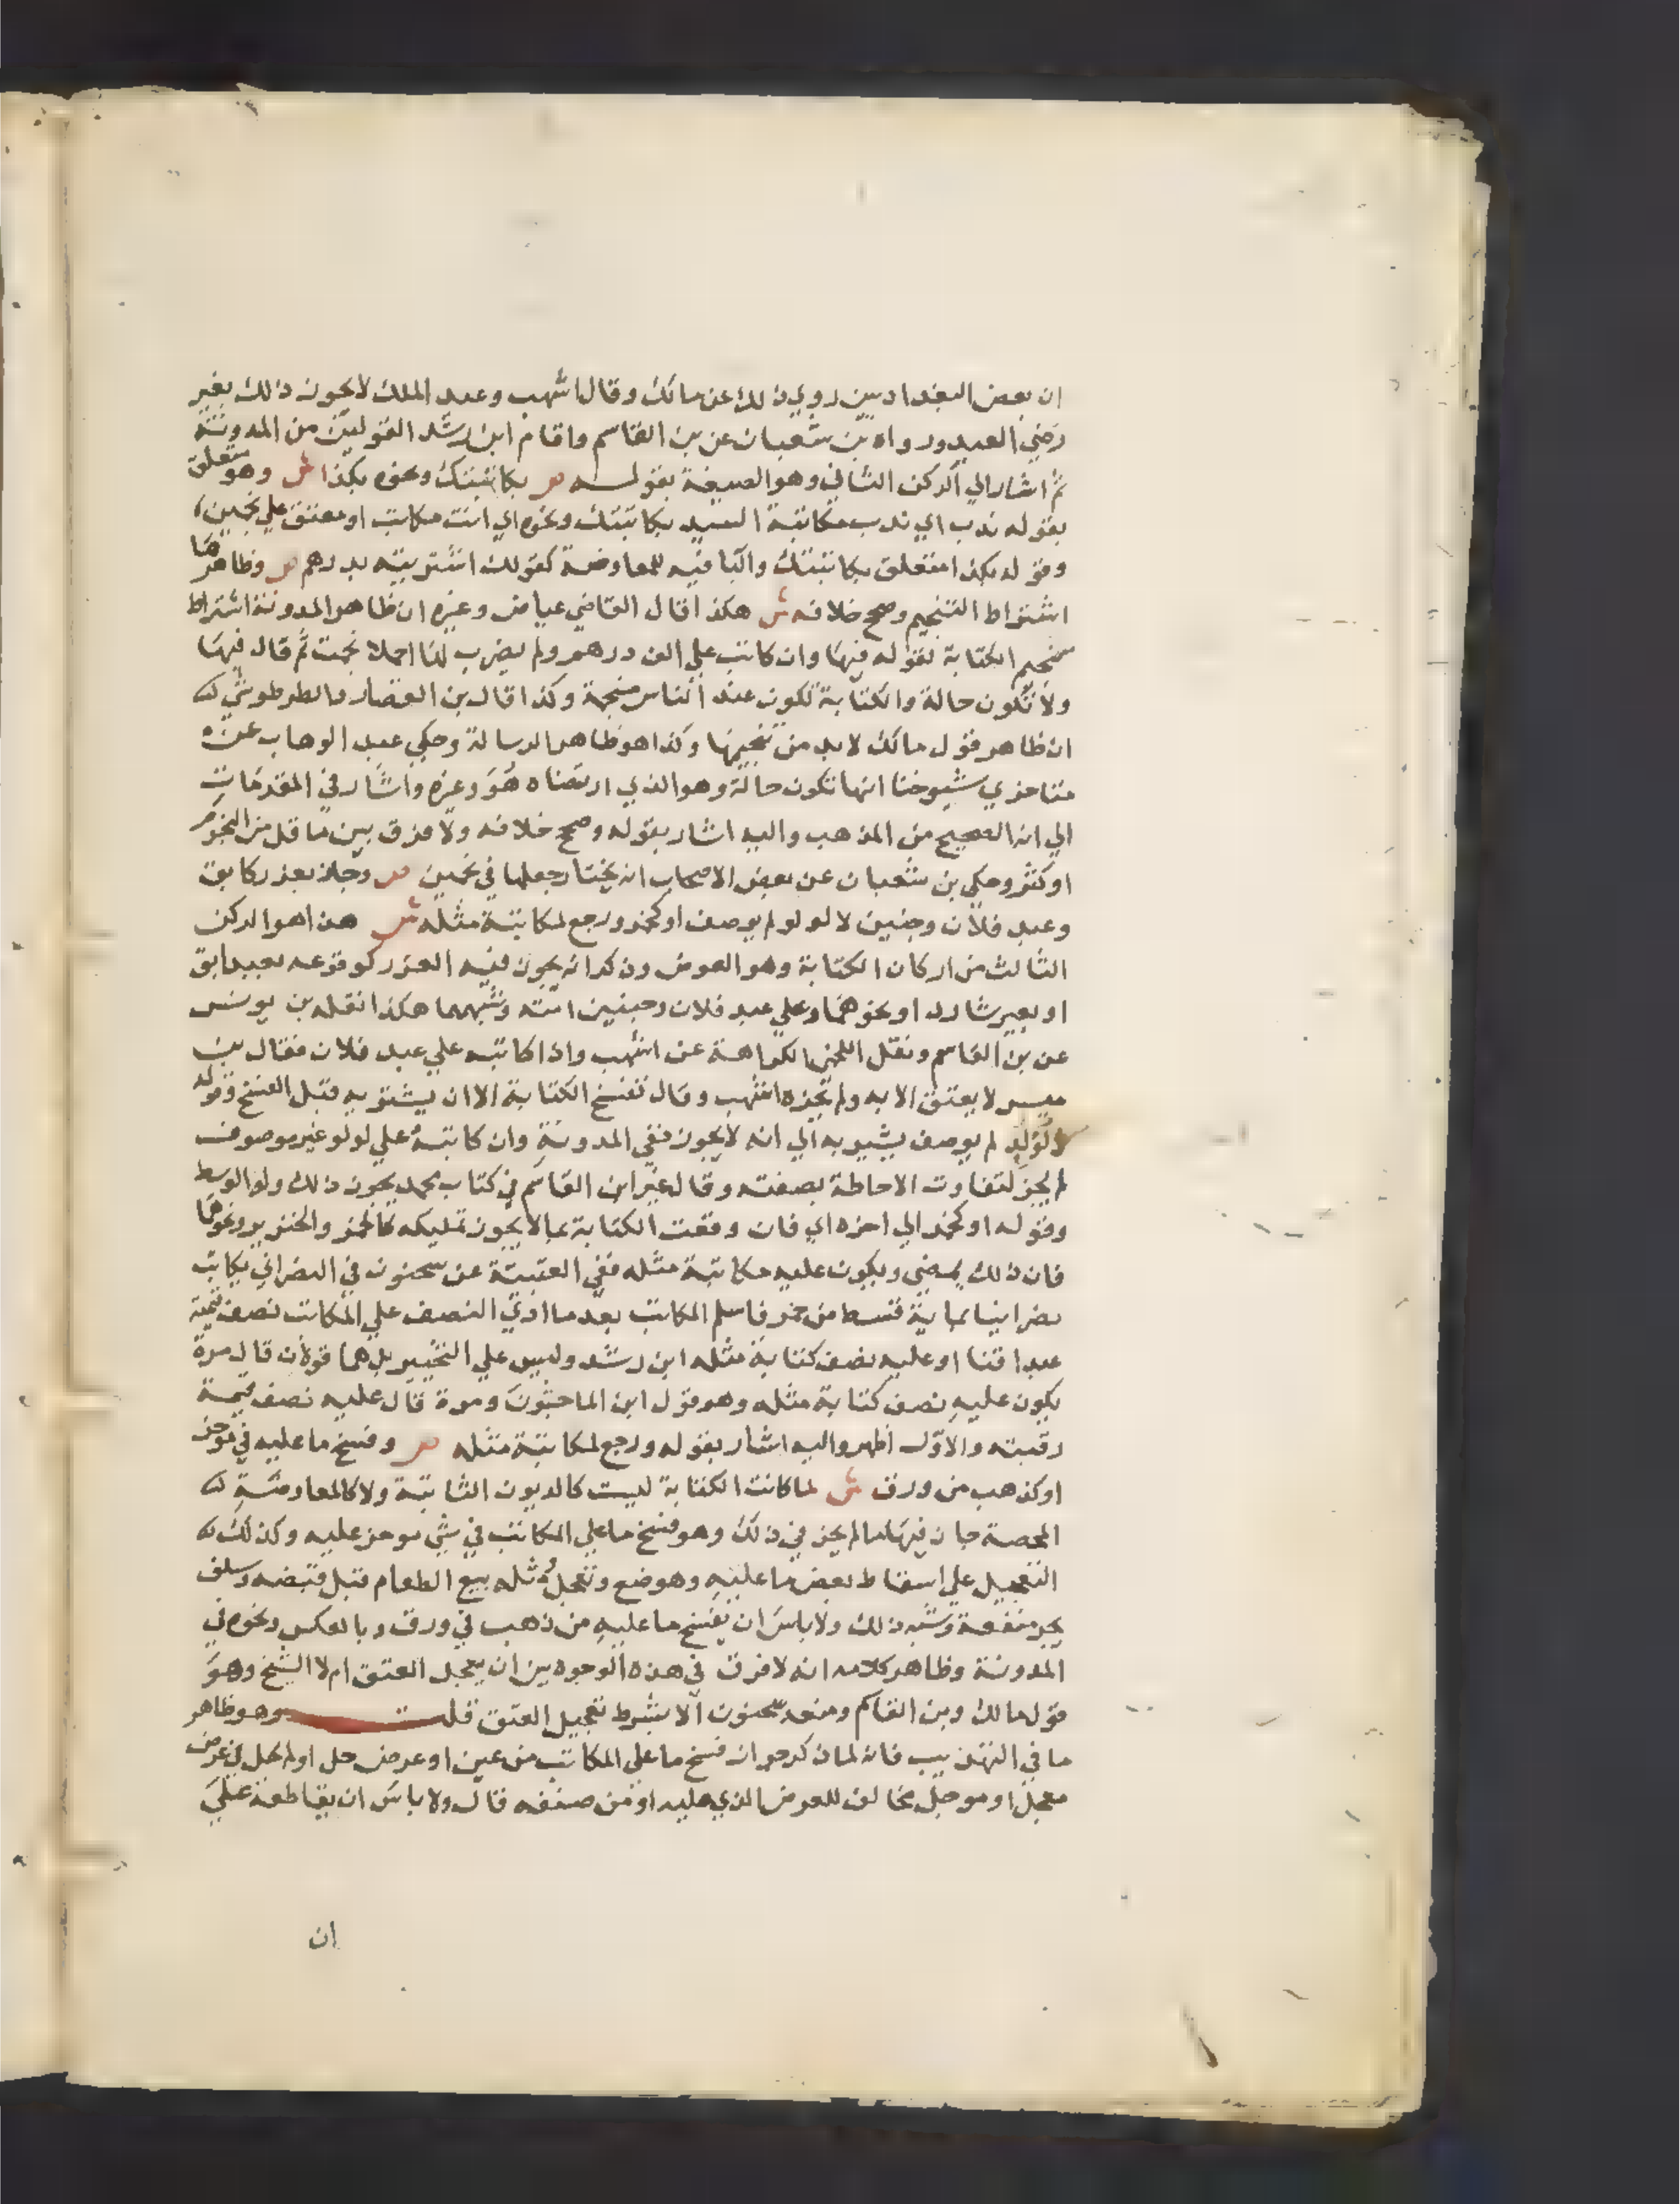 ان بعض البغداديين روي ذلك عن مالك وقال اشهب وعبد الملك لا يجوز ذلك بغير
رضي العبد ورواه بن شعبان عن بن القاسم واقام ابن رشد القولين من المدونة
ثم اشار الي الركن الثاني وهو الصيغة بقوله ص بكاتبتك ونحوه بكذا ش وهو متعلق
بقوله ندب اي ندب مكاتبة السيد بكاتبتك ونحوه اي انت مكاتب او معتق علي نجمين
وقوله بكذا متعلق بكاتبتك والبا فيه للمعاوضة كقولك اشتريته بدرهم ص وظاهرها
اشتراط التنجيم وصحح خلافه ش هكذا قال القاضي عياض وغيره ان ظاهر المدونة اشتراط
تنجيم الكتابة لقوله فيها وان كاتب علي الف درهم ولم يضرب لها اجلا نجمت ثم قال فيها
ولا تكون حالة والكتابة تكون عند الناس منجمة وكذا قال بن القصار والطرطوشي
ان ظاهر قول مالك لا بد من تنجيمها وكذا هو ظاهر الرسالة وحكي عبد الوهاب عن
متاخري شيوخنا انها تكون حالة وهو الذي ارتضاه هو وغيره واشار في المقدمات
الي انه الصحيح من المذهب واليه اشار بقوله وصحح خلافه ولا فرق بين ما قل من النجوم
او كثر وحكي بن شعبان عن بعض الاصحاب انه يختار جعلها في نجمين ص وجاز بغرر كابق
وعبد فلان وجنين لا لولو لم يوصف او كخمر ورجع لمكاتبة مثله ش هذا هو الركن
الثالث من اركان الكتابة وهو العوض وذكر انه يجوز فيه الغرر كوقوعه بعبد ابق
او بعير شارد او نحوهما وعلي عبد فلان وجنين امته وشبههما هكذا نقله بن يونس
عن بن القاسم ونقل اللخمي الكراهة عن اشهب واذا كاتبه علي عبد فلان فقال بن
ميسر لا يعتق الا به ولم يجزه اشهب وقال تفسخ الكتابة الا ان يشتريه قبل الفسخ وقوله
لا لولو لم يوصف يشير به الي انه لا يجوز ففي المدونة وان كاتبه علي لولو غير موصوف
لم يجز لتفاوت الاحاطة بصفته وقال غير ابن القاسم في كتاب محمد يجوز ذلك وله الوسط
وقوله او كخمر الي اخره اي فان وقعت الكتابة بما لا يجوز تمليكه كالخمر والخنزير ونحوهما
فان ذلك يمضي ويكون عليه مكاتبة مثله ففي العتبية عن سحنون في النصراني يكاتب
نصرانيا بماية قسط من خمر فاسلم المكاتب بعد ما ادي النصف علي المكاتب نصف قيمته
عبدا قنا او عليه نصف كتابة مثله ابن رشد وليس علي التخيير بل هما قولان قال مرة
يكون عليه نصف كتابة مثله وهو قول ابن الماجشون ومرة قال عليه نصف قيمة
رقبته والاول اظهر واليه اشار بقوله ورجع لمكاتبة مثله ص وفسخ ما عليه في موخر
او كذهب من ورق ش لما كانت الكتابة ليست كالديون الثابتة ولا كالمعاوضة
المحضة جاز فيها ما لم يجز في ذلك وهو فسخ ما علي المكاتب في شي موخر عليه وكذلك
التعجيل علي اسقاط بعض ما عليه وهو ضع وتعجل ومثله بيع الطعام قبل قبضه وسلف
يجر منفعة وشبه ذلك ولا باس ان يفسخ ما عليه من ذهب في ورق وبالعكس ونحوه في
المدونة وظاهر كلامه انه لا فرق في هذه الوجوه بين ان يعجل العتق ام لا الشيخ وهو
قول مالك وبن القاسم ومنعه سحنون الا بشرط تعجيل العتق قلت وهو ظاهر
ما في التهذيب فانه لما ذكر جواز فسخ ما علي المكاتب من عين او عرض حل او لم يحل في عرض
معجل او موجل مخالف للعرض الذي عليه او من صنفه قال ولا باس ان يقاطعه علي
ان